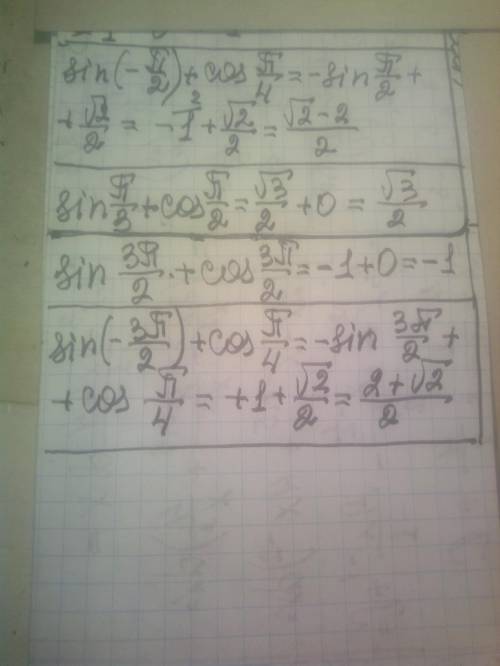 sin(-π/2) + cos π/4 = -sin π/2 +
+ √2/2 = -1^2 + √2/2 = √2-2/2
sin π/3 + cos π/2 = √3/2 + 0 = √3/2
sin 3π/2 + cos 3π/2 = -1+0 = -1
sin(-3π/2) + cos π/4 = -sin 3π/2 +
+ cos π/4 = +1 + √2/2 = 2+√2/2